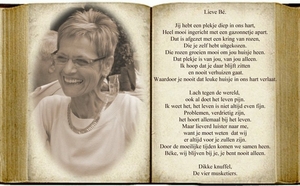 Lieve Bé.
Jij hebt een plekje diep in ons hart,
Heel mooi ingericht met een gazonnetje apart.
Dat is afgezet met een kring van rozen,
Die je zelf hebt uitgekozen.
Die rozen groeien mooi om jou huisje heen.
Dat plekje is van jou, van jou alleen.
Ik hoop dat je daar blijft zitten
en nooit verhuizen gaat.
Waardoor je nooit dat leuke huisje in ons hart verlaat.
Lach tegen de wereld,
ook al doet het leven pijn.
Ik weet het, het leven is niet altijd even fijn.
Problemen, verdrietig zijn,
het hoort allemaal bij het leven.
Maar lieverd luister naar me,
want je moet weten dat wij
er altijd voor je zullen zijn.
Door de moeilijke tijden komen we samen heen.
Béke, wij blijven bij je, je bent nooit alleen.
Dikke knuffel,
De vier musketiers.